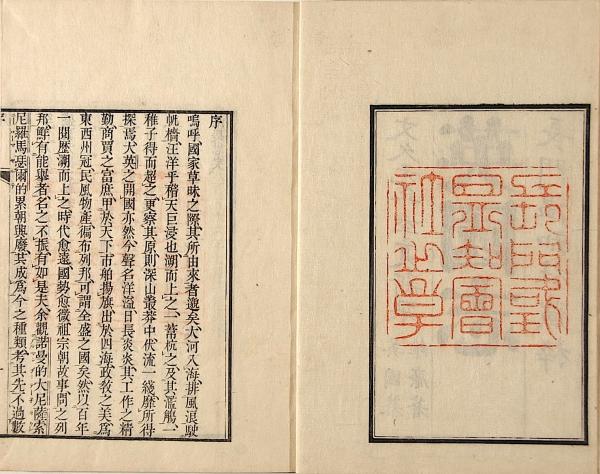 社之章
序
嗚呼國家草昧之際其所由來者邈矣大河入海排風退駛
帆檣汪洋乎稽天巨浸也溯而上之一葦杭之及其濫觴一
稚子得而超之更察其原則深山叢莽中伏流一綫靡所待
探焉大英之開國亦然今聲名洋溢日長炎炎其工作之精
勤商賈之富庶甲於天下市舶揚旗出於四海政敎之美爲
東西州冠民風物產徧布列邦可謂全盛之國矣然以百年
一閱歷溯而上之時代愈遠國勢愈微祖宗朝故事問之列
邦鮮有能舉者名之不振有如是夫余觀諾曼的大尼薩索
尼羅馬瑟爾的累朝興廢其成爲今之種類考其先不過數
序